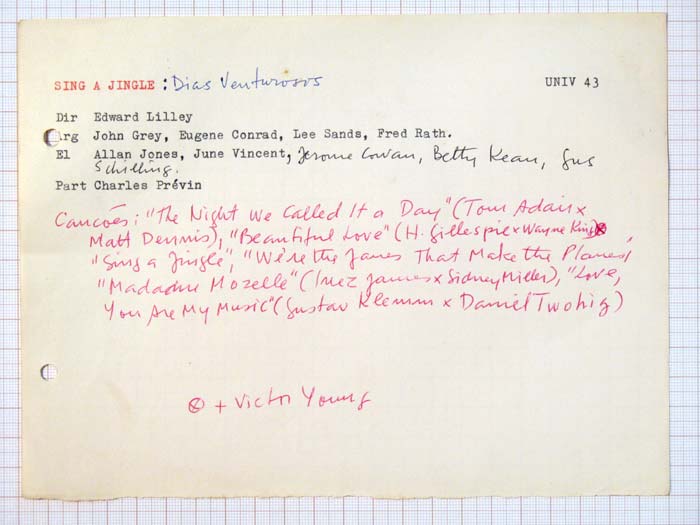 SING A JINGLE : Dias Venturosos UNIV 43
Dir Edward Lilley
Arg John Grey, Eugene Conrad, Lee Sands, Fred Rath.
El Allan Jones, June Vincent, Jerome Cowan, Betty Kean, Gus
Schilling.
Part Charles Prévin
Canções: "The Night We Called It a Day" (Tom Adair x
Matt Dennis), "Beautiful Love" (H. Gillespie x Wayne King) ⊗
"Sing a Jingle", "We're the Janes That Make the Planes",
"Madame Mozelle" (Inez James x Sidney Miller), "Love,
You Are My Music" (Gustav Klemm x Daniel Twohig)
⊗ + Victor Young